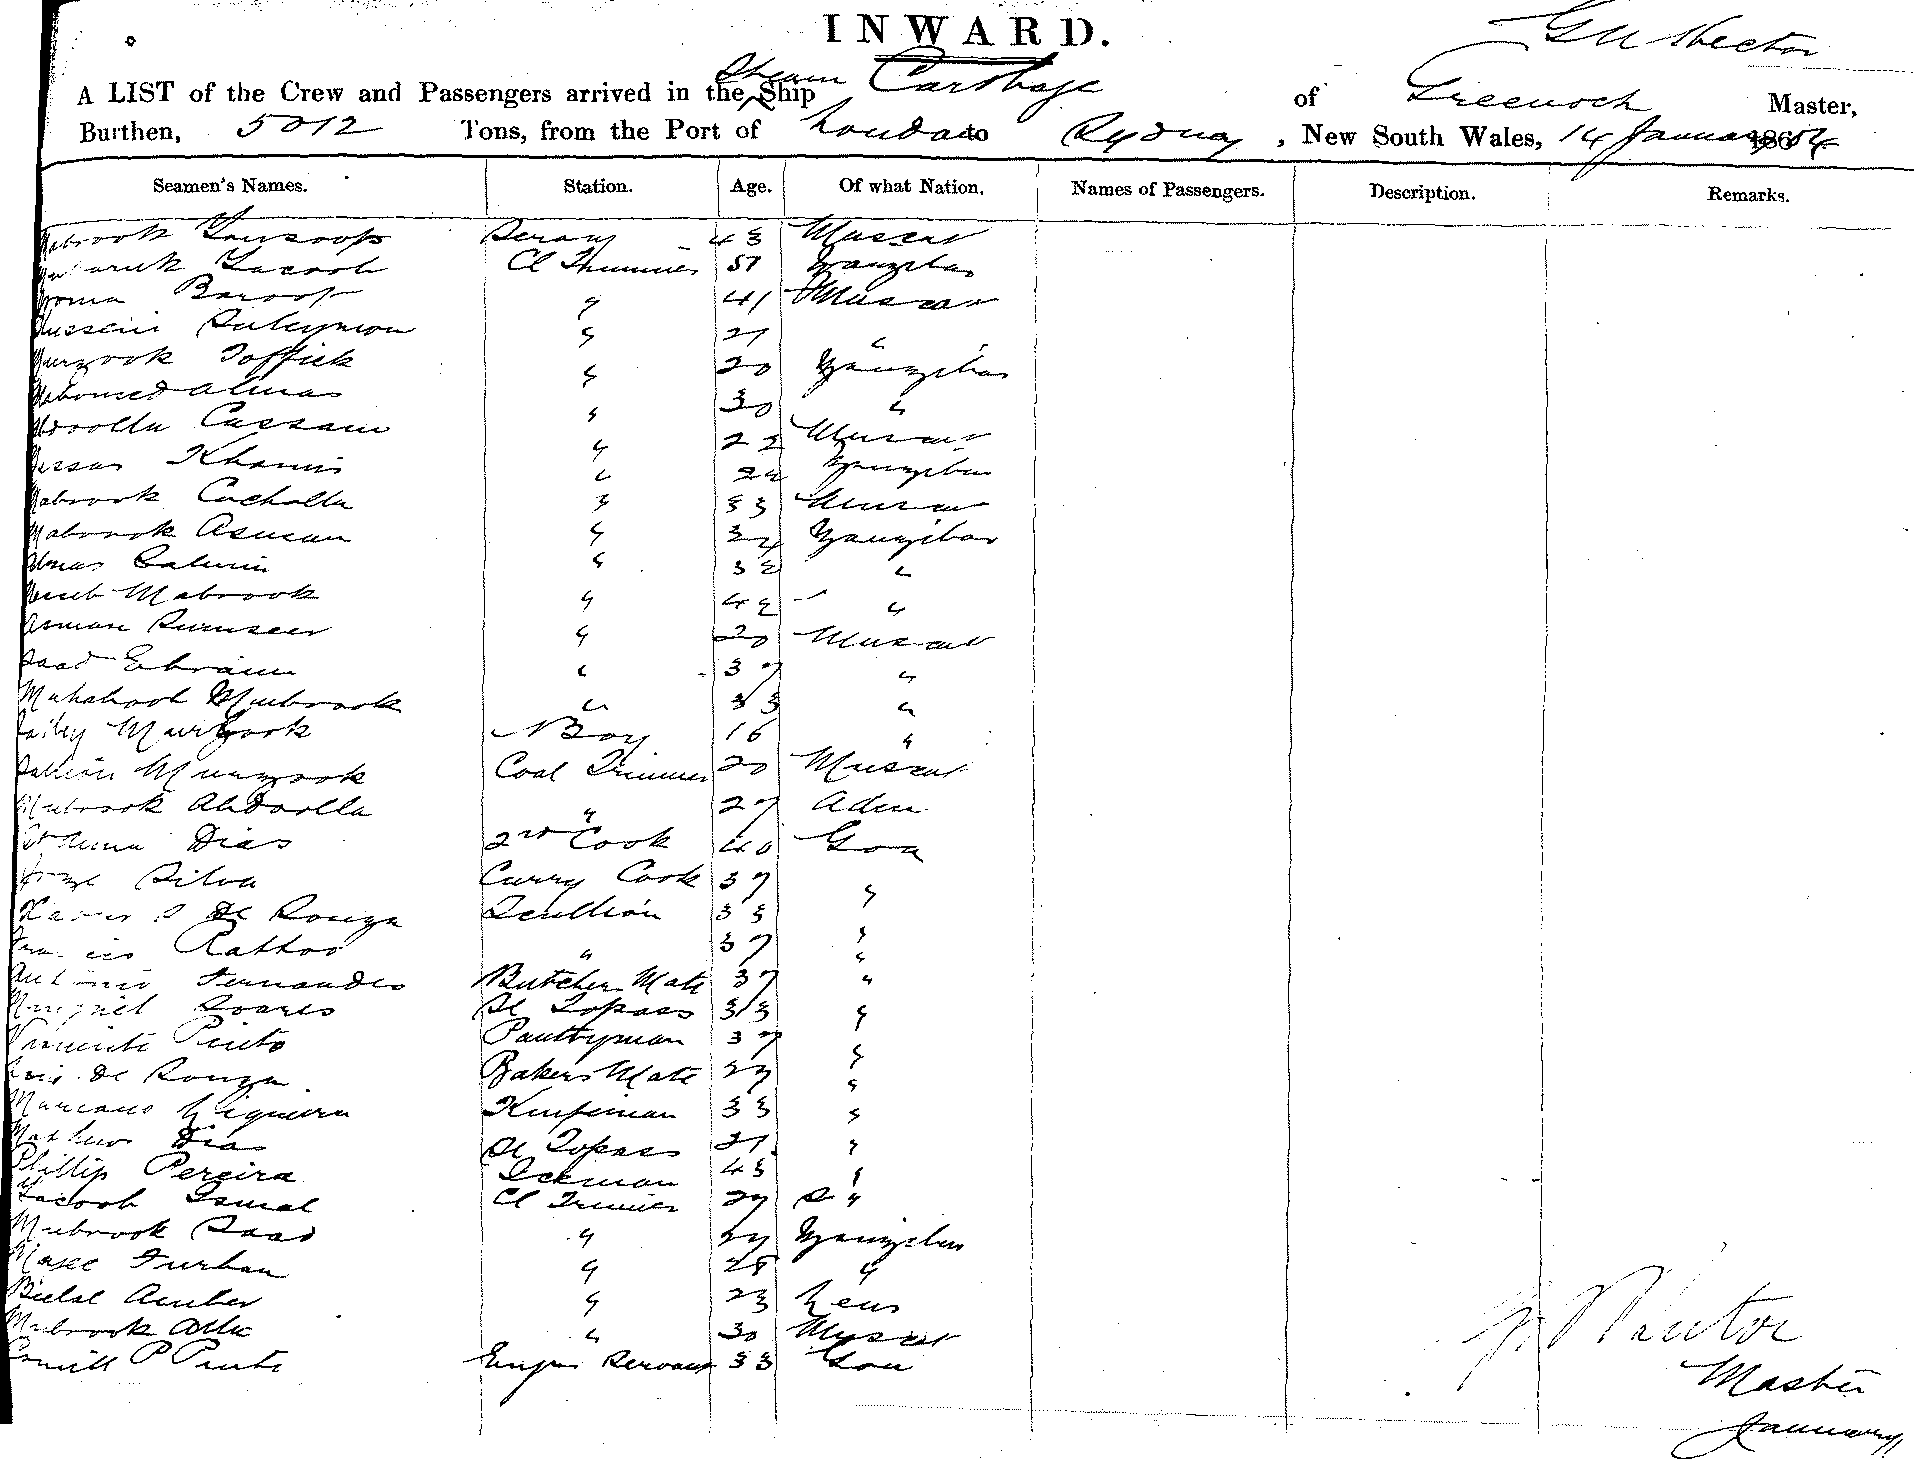 INWARD.
G W Hector
A LIST of the Crew and Passengers arrived in the Steam Ship Carthage of Greenock Master,
Burthen, 5012 Tons, from the Port of London to Sydney, New South Wales, 14 January 186 84
Seamen's Names. Station. Age. Of what Nation. Names of Passengers. Description. Remarks.
Mabrook Serang 43 Muscat
Yacoob Cl Trimmer 51 Zanzibar
" 41 Muscat
Hussein Suleyman " 27 "
Murzook Toffick " 20 Zanzibar
Mahomed Almas " 30 "
Abdoolla Cassam " 22 Muscat
Khamis " 22 Zanzibar
Mabrook " 33 Muscat
Mabrook Asman " 32 Zanzibar
Almas Salmin " 32 "
Mabrook " 42 "
Asman " 20 Muscat
Saad Ebraim " 37 "
Mahaboob Mubrook " 33 "
Murzook Boy 16 "
Murzook Coal Trimmer 20 Muscat
Mubrook Abdoolla " 27 Aden
Dias 2nd Cook 40 Goa
Silva Curry Cook 37 "
Xavier De Souza Scullion 33 "
" 37 "
Antonio Fernandes Butchers Mate 37 "
Miguel Soares Sl Topass 33 "
Vincente Pinto Pantryman 37 "
De Souza Bakers Mate 27 "
Mariano 33 "
Mathew Dias Sl Topass 27 "
Phillip Pereira 43 "
Yacoob Ismal Cl Trimmer 27 "
Mubrook Saad " 27 Zanzibar
Furhan " 25 "
Bielal Amber " 23
Mubrook " 30 Muscat
P Pinto Engrs Servant 33 Goa
Hector
Master
January